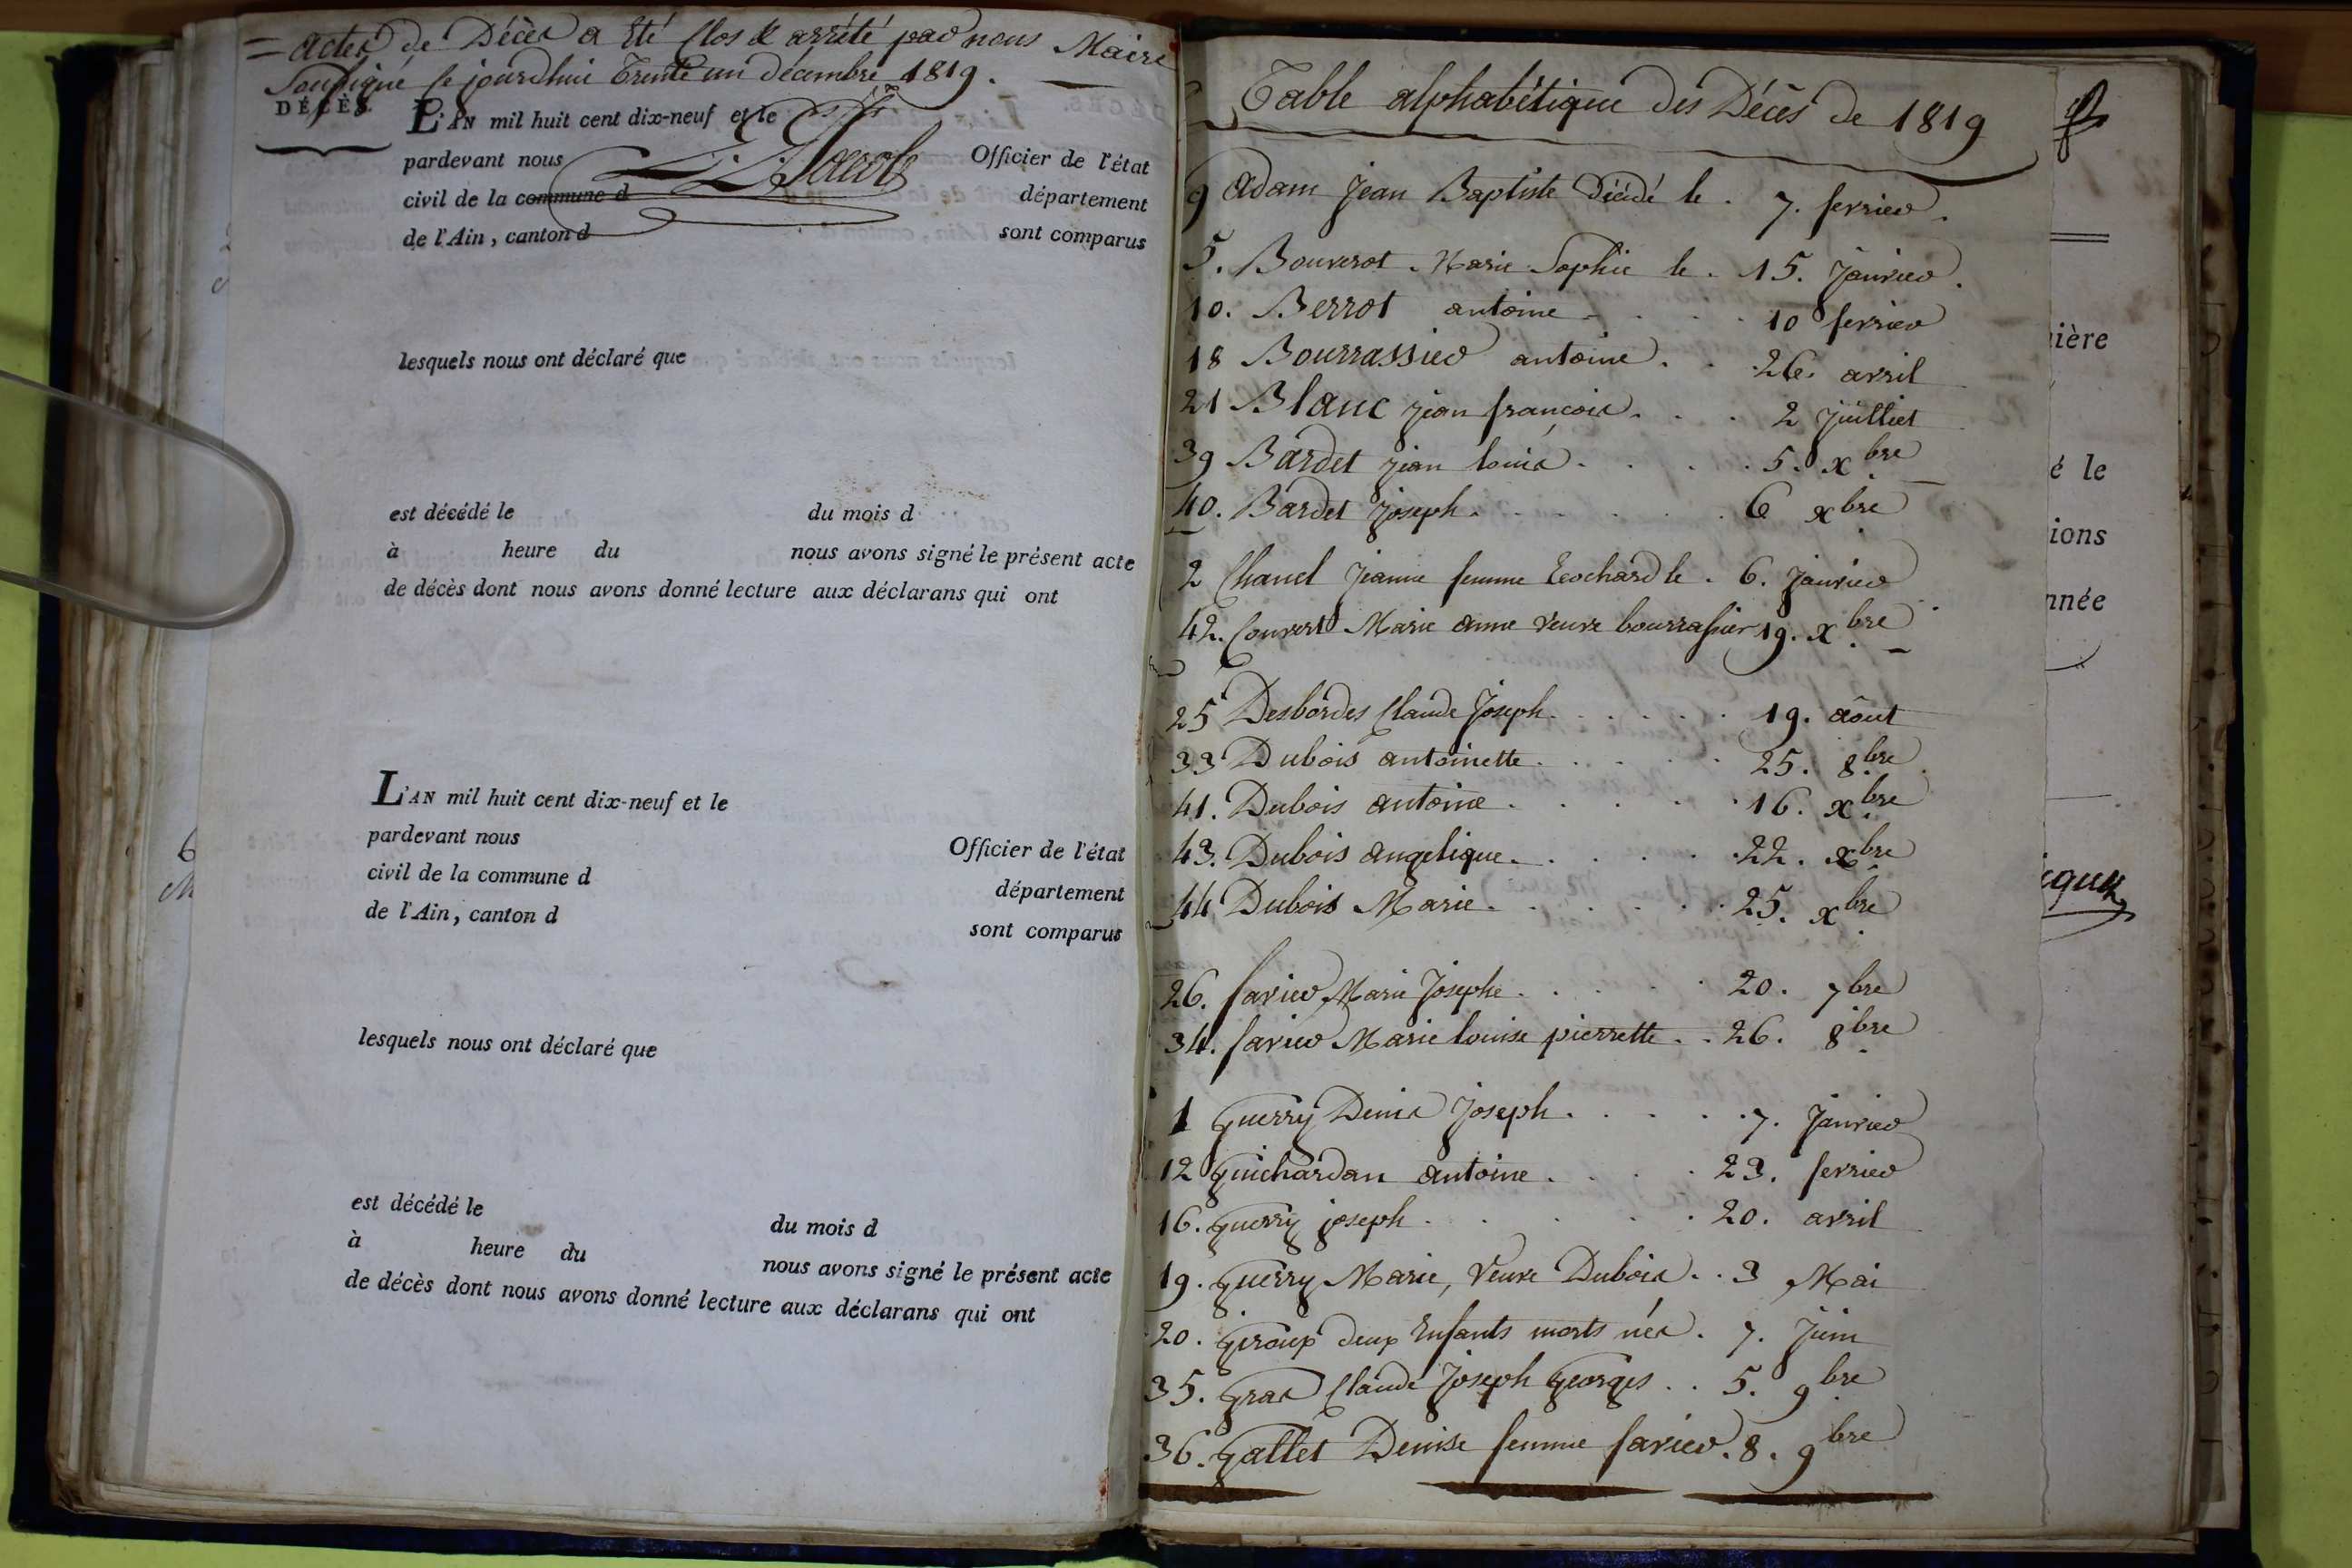 = actes de Décès a été Clos & arrêté par nous Maire
Soussigné ce jourdhui Trente un décembre 1819.
DÉCÈS.
L'AN mil huit cent dix-neuf et le
pardevant nous Officier de l'état
civil de la commune d département
de l'Ain, canton d sont comparus
lesquels nous ont déclaré que
est décédé le du mois d
à heure du nous avons signé le présent acte
de décès dont nous avons donné lecture aux déclarans qui ont
L'AN mil huit cent dix-neuf et le
pardevant nous Officier de l'état
civil de la commune d département
de l'Ain, canton d sont comparus
lesquels nous ont déclaré que
est décédé le du mois d
à heure du nous avons signé le présent acte
de décès dont nous avons donné lecture aux déclarans qui ont
Table alphabétique des Décès de 1819
9 Adam Jean Baptiste Décédé le . 7. fevrier.
5. Bouverot Marie Sophie le . 15. Janvier.
10. Berrot antoine . . . 10 fevrier
18 Bourrassier antoine . . 26. avril
21 Blanc jean françois . . . 2 juilliet
39 Bardet jean louis . . . . 5. xbre
40. Bardet joseph . . . . . 6 xbre
2 Chanel Jeanne femme Ecochard le . 6. Janvier
42. Convert Marie anne veuve bourrassier 19. xbre
25 Desbordes Claude Joseph . . . . . 19. aôut
33 Dubois antoinette . . . . . 25. 8bre
41. Dubois antoine . . . . . 16. xbre
43. Dubois angelique . . . . . 22. xbre
44 Dubois Marie . . . . . . 25. xbre
26. favier Marie Josephe . . . . . 20. 7bre
34. favier Marie louise pierrette . . 26. 8bre
1 Guerry Denis Joseph . . . . . 7. Janvier
12 Guichardan antoine . . . . 23. fevrier
16. Guerry joseph . . . . . . 20. avril
19. Guerry Marie, Veuve Dubois . . 3 Mai
20. Giroux deux Enfants morts nés . 7. Juin
35. Gras Claude Joseph Georges . . 5. 9bre
36. Gallet Denise femme favier . 8. 9bre
ière
é le
ions
nnée